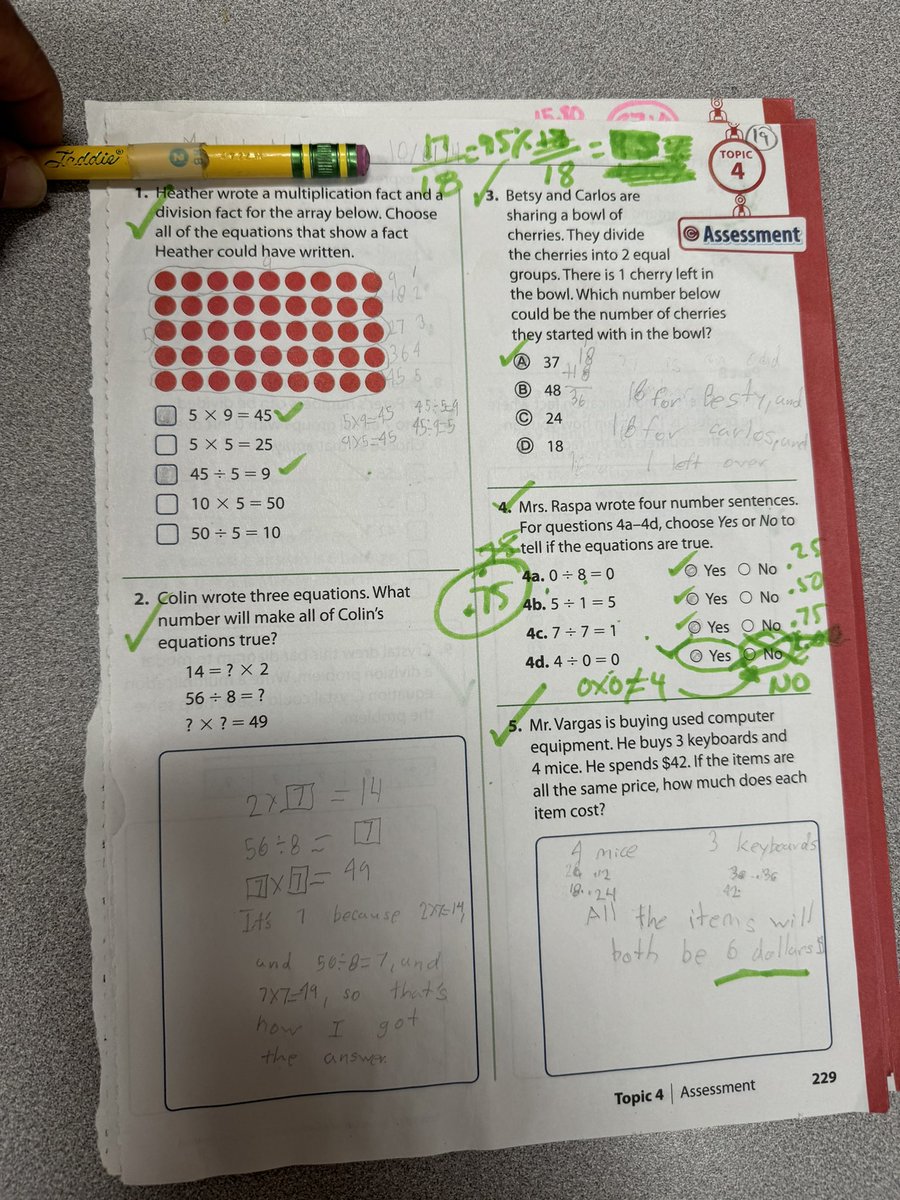 Teddie®
15.80
17
18
=95%
17
18
=
19
TOPIC
4
Assessment
1. Heather wrote a multiplication fact and a
division fact for the array below. Choose
all of the equations that show a fact
Heather could have written.
9
9 1
18 2
27 3
36 4
45 5
5 × 9 = 45
5 × 5 = 25
45 ÷ 5 = 9
10 × 5 = 50
50 ÷ 5 = 10
5x9=45
9x5=45
45÷5=9
45÷9=5
2. Colin wrote three equations. What
number will make all of Colin's
equations true?
14 = ? × 2
56 ÷ 8 = ?
? × ? = 49
2x7 = 14
56÷8 = 7
7x7= 49
It's 7 because 2x7=14,
and 56÷8=7, and
7x7=49, so that's
how I got
the answer.
3. Betsy and Carlos are
sharing a bowl of
cherries. They divide
the cherries into 2 equal
groups. There is 1 cherry left in
the bowl. Which number below
could be the number of cherries
they started with in the bowl?
A 37
B 48
C 24
D 18
18
+18
36
18 for Besty, and
18 for carlos, and
1 left over
4. Mrs. Raspa wrote four number sentences.
For questions 4a–4d, choose Yes or No to
tell if the equations are true.
4a. 0 ÷ 8 = 0 Yes No .25
4b. 5 ÷ 1 = 5 Yes No .50
4c. 7 ÷ 7 = 1 Yes No .75
4d. 4 ÷ 0 = 0 Yes No
.75
0x0≠4
NO
5. Mr. Vargas is buying used computer
equipment. He buys 3 keyboards and
4 mice. He spends $42. If the items are
all the same price, how much does each
item cost?
4 mice 3 keyboards
12 36
18 24 42
All the items will
both be 6 dollars$
Topic 4 | Assessment 229